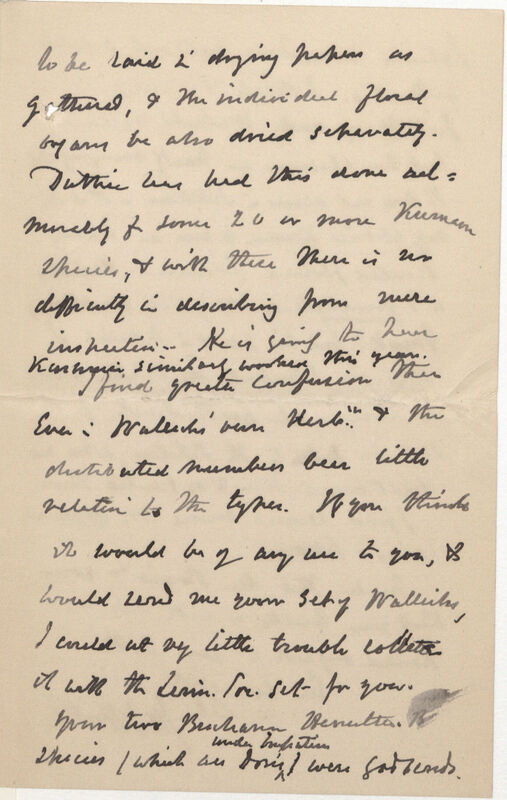 to be laid in drying papers as
gathered, & the individual floral
organs be also dried separately.
Duthie has had this done ad=
mirably for some 20 or more Kumaon
species, & with these there is no
difficulty in describing from mere
inspection. He is going to have
Kashmir similarly worked this year.
I find greater confusion than
Ever in Wallich's own Herb.m & the
distributed numbers bear little
relation to the types. If you think
it would be of any use to you, &
would send me your set of Wallichs,
I could at very little trouble collate
it with the Linn. Soc. set for you.
Your two Buchanan Hamilton
species (which are Don's under Impatiens) were godsends.